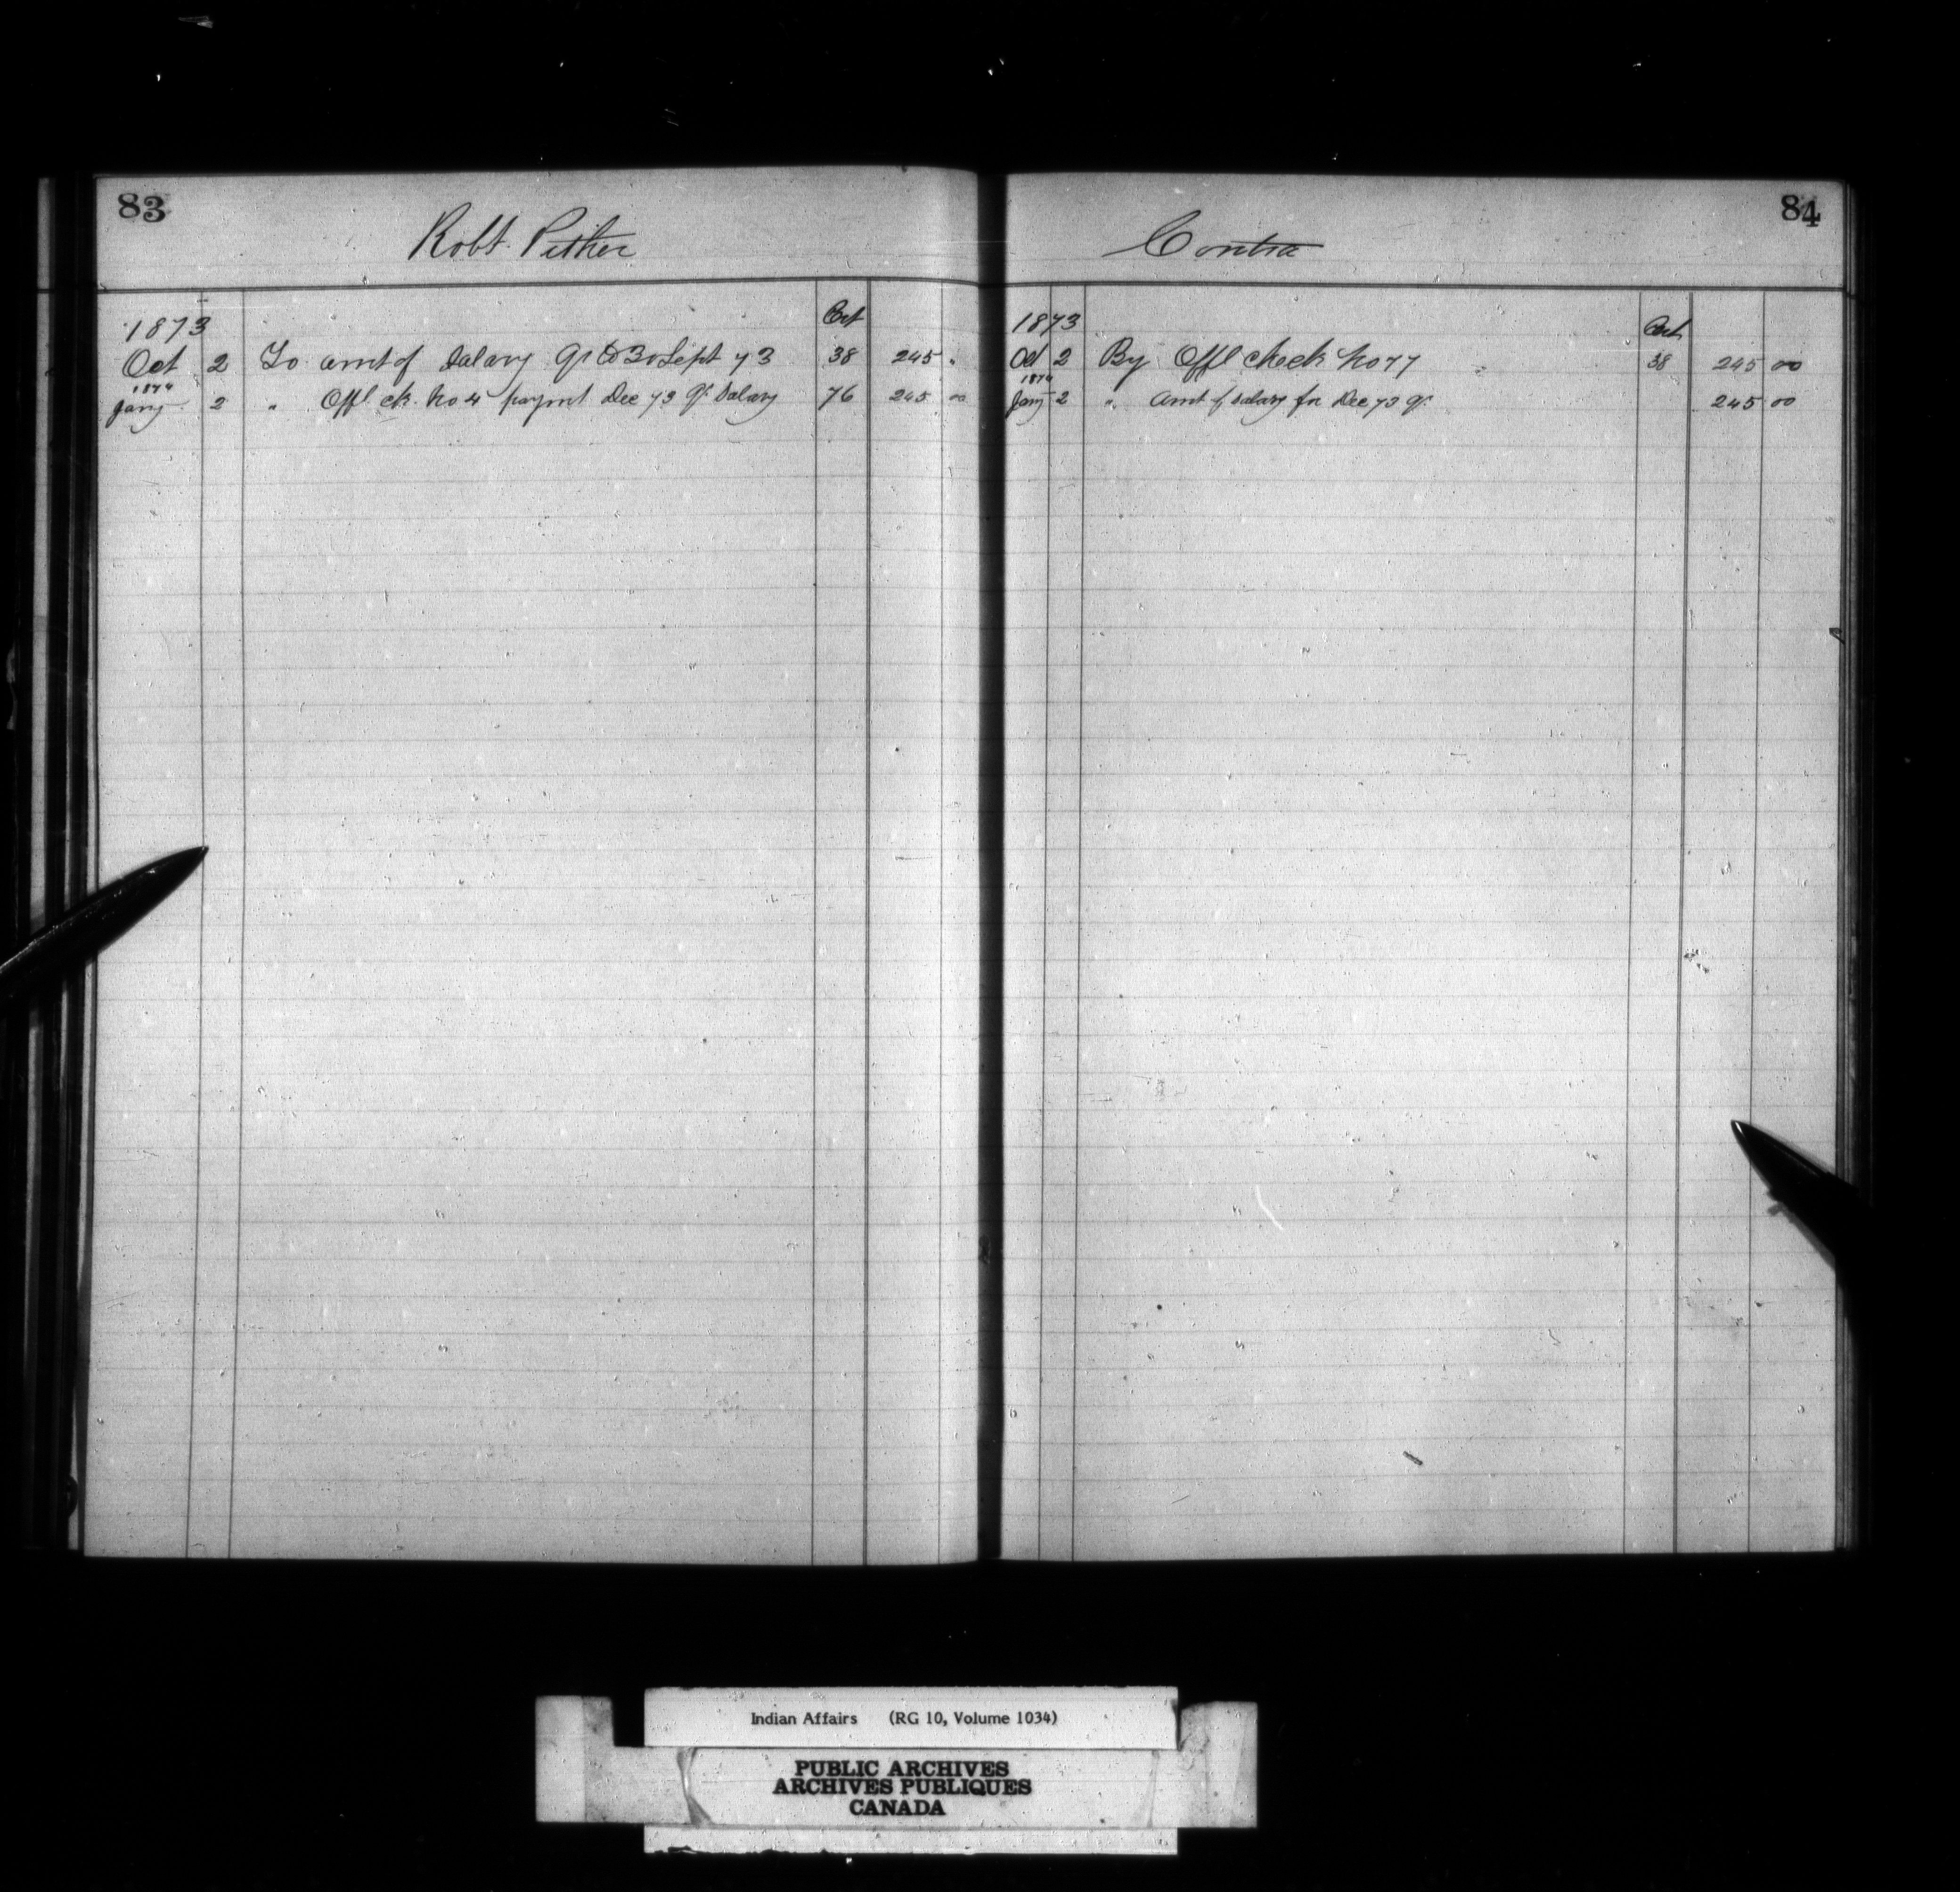 83
Robt. Pither
1873
Oct 2 To amt of Salary Qr to 30 Sept 73 38 245 "
1874
Jany 2 " Offl ck. No 4 paymt Dec 73 Qr Salary 76 245 00
84
Contra
1873
Oct 2 By Offl Check No 77 38 245 00
1874
Jany 2 " Amt of Salary for Dec 73 qr 245 00
Indian Affairs (RG 10, Volume 1034)
PUBLIC ARCHIVES
ARCHIVES PUBLIQUES
CANADA